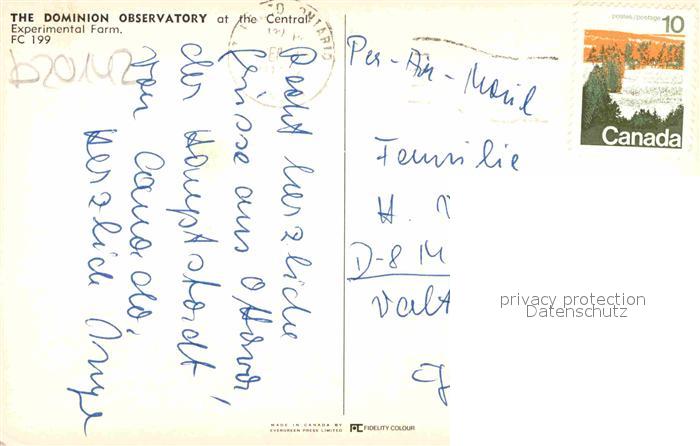 THE DOMINION OBSERVATORY at the Central
Experimental Farm.
FC 199
b20142
ONTARIO
Recht herzliche
Grüsse aus Ottawa,
der Hauptstadt
von Canada!
Herzlich Inge
Per-Air-Mail
Familie
H.
D-8 M
Valt
postes/postage
10
Canada
privacy protection
Datenschutz
MADE IN CANADA BY
EVERGREEN PRESS LIMITED
FC FIDELITY COLOUR